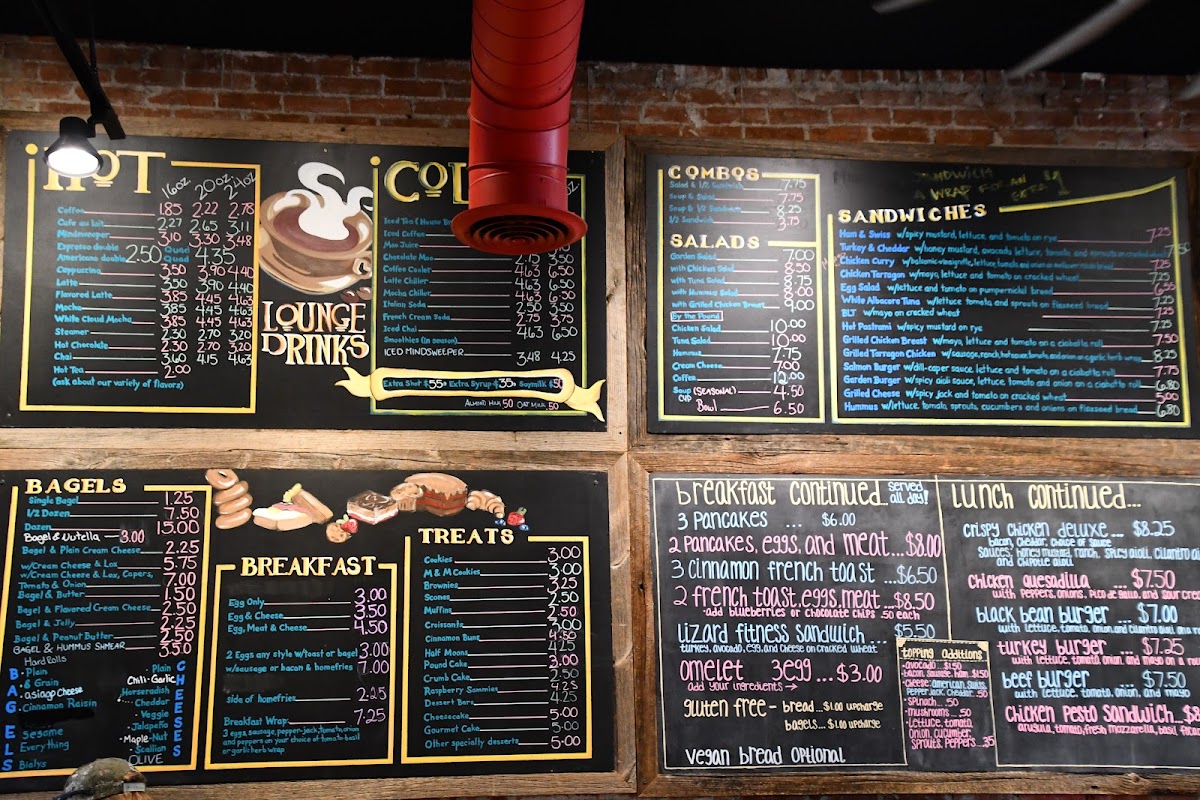 HOT
16oz 20oz 24oz
Coffee 1.85 2.22 2.78
Cafe au lait 2.27 2.65 3.11
Mindsweeper 3.10 3.30 3.48
Espresso double 2.50 Quad 4.35
Americano double Quad
Cappuccino 3.50 3.90 4.40
Latte 3.50 3.90 4.40
Flavored Latte 3.85 4.45 4.63
Mocha 3.85 4.45 4.63
White Cloud Mocha 3.85 4.45 4.63
Steamer 2.30 2.70 3.20
Hot Chocolate 2.30 2.70 3.20
Chai 3.60 4.15 4.63
Hot Tea 2.00
(ask about our variety of flavors)
LOUNGE
DRINKS
Iced Coffee
Moo Juice
Chocolate Moo
Coffee Cooler 4.63 6.50
Latte Chiller 4.63 6.50
Mocha Chiller 4.63 6.50
Italian Soda
French Cream Soda 2.75 3.75
Iced Chai
Smoothies (in season) 4.63 6.50
ICED MINDSWEEPER 3.48 4.25
Extra Shot $.55 Extra Syrup $.35 Soymilk $.50
ALMOND MILK .50 OAT MILK .50
COMBOS
Salad & 1/2 Sandwich 7.75
Soup & Salad 7.75
Soup & 1/2 Sandwich 8.25
1/2 Sandwich 3.75
SALADS
Garden Salad 7.00
with Chicken Salad 8.50
with Tuna Salad 8.75
with Hummus Salad 8.00
with Grilled Chicken Breast 9.00
By the Pound
Chicken Salad 10.00
Tuna Salad 10.00
Hummus 7.75
Cream Cheese 7.00
Coffee 12.00
Soup (SEASONAL)
CUP 4.50
Bowl 6.50
SANDWICH
A WRAP FOR AN
EXTRA $1
SANDWICHES
Ham & Swiss w/spicy mustard, lettuce and tomato on rye 7.25
Turkey & Cheddar w/honey mustard, avocado lettuce, tomato and sprouts on cracked wheat 7.50
Chicken Curry w/balsamic vinaigrette, lettuce, tomato
Chicken Tarragon w/mayo, lettuce and tomato on cracked wheat 7.25
Egg Salad w/lettuce and tomato on pumpernickel bread 6.55
White Albacore Tuna w/lettuce, tomato and sprouts on flaxseed bread 7.25
BLT w/mayo on cracked wheat 7.25
Hot Pastrami w/spicy mustard on rye 7.25
Grilled Chicken Breast w/mayo, lettuce and tomato on a ciabatta roll 7.50
Grilled Tarragon Chicken w/sausage, ranch, hot sauce, tomato and onion on a garlic herb wrap 8.25
Salmon Burger w/dill-caper sauce, lettuce and tomato on a ciabatta roll 7.75
Garden Burger w/spicy aioli sauce, lettuce, tomato and onion on a ciabatta roll 6.80
Grilled Cheese w/spicy jack and tomato on cracked wheat 5.00
Hummus w/lettuce, tomato, sprouts, cucumbers and onions on flaxseed bread 6.80
BAGELS
Single Bagel 1.25
1/2 Dozen 7.50
Dozen 15.00
Bagel & Nutella 3.00
Bagel & Plain Cream Cheese 2.25
w/Cream Cheese & Lox 5.75
w/Cream Cheese & Lox, Capers,
Tomato & Onion 7.00
Bagel & Butter 1.50
Bagel & Flavored Cream Cheese 2.50
Bagel & Jelly 2.25
Bagel & Peanut Butter 2.50
BAGEL & HUMMUS SHMEAR 3.50
Hard Rolls
BAGELS
Plain
6 Grain
asiago Cheese
Cinnamon Raisin
Sesame
Everything
Bialys
CHEESES
Plain
Chili-Garlic
Horseradish
Cheddar
Veggie
Jalapeño
Maple-Nut
Scallion
OLIVE
BREAKFAST
Egg Only 3.00
Egg & Cheese 3.50
Egg, Meat & Cheese 4.50
2 Eggs any style w/toast or bagel 3.00
w/sausage or bacon & homefries 7.00
side of homefries 2.25
Breakfast Wrap 7.25
3 eggs, sausage, pepper-jack, tomato, onion
and peppers on your choice of tomato basil
or garlic herb wrap
TREATS
Cookies 3.00
M & M Cookies 3.00
Brownies 3.25
Scones 2.50
Muffins 2.50
Croissants 3.00
Cinnamon Buns 4.50
Half Moons 4.25
Pound Cake 3.00
Crumb Cake 2.50
Raspberry Sammies 2.25
Dessert Bars 4.25
Cheesecake 5.00
Gourmet Cake 5.00
Other specialty desserts 5.00
breakfast continued... served all day!
3 Pancakes ... $6.00
2 Pancakes, eggs, and meat...$8.00
3 cinnamon french toast ...$6.50
2 french toast, eggs, meat...$8.50
-add blueberries or chocolate chips .50 each
lizard fitness sandwich... $5.50
turkey, avocado, egg, and cheese on cracked wheat
omelet 3egg...$3.00
add your ingredients →
gluten free- bread...$1.00 upcharge
bagels...$1.00 upcharge
vegan bread optional
topping additions
-avocado...$1.50
-bacon, sausage, ham..$1.50
-cheese: american, swiss,
Pepper Jack, cheddar .50
-spinach...50
-mushrooms...50
-Lettuce, tomato,
onion, cucumber,
sprouts, Peppers...35
lunch continued...
crispy chicken deluxe... $8.25
bacon, cheddar, choice of sauce
sauces: honey mustard, ranch, spicy aioli, cilantro
and chipotle aioli
chicken quesadilla ... $7.50
with peppers, onions, pico de gallo, and sour cream
black bean burger ... $7.00
with lettuce, tomato, onion, and cilantro aioli on a
turkey burger ... $7.25
with lettuce, tomato, onion, and mayo on a
beef burger ... $7.50
with lettuce, tomato, onion, and mayo
Chicken pesto sandwich..$8
arugula, tomato, fresh mozzarella, basil